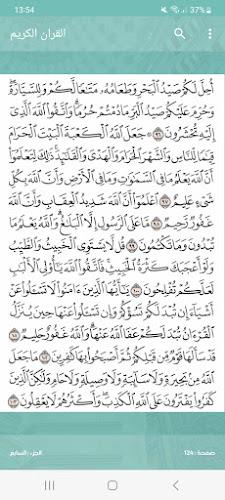 13:54 37%
القران الكريم
أُحِلَّ لَكُمْ صَيْدُ ٱلْبَحْرِ وَطَعَامُهُۥ مَتَٰعًا لَّكُمْ وَلِلسَّيَّارَةِ
وَحُرِّمَ عَلَيْكُمْ صَيْدُ ٱلْبَرِّ مَا دُمْتُمْ حُرُمًا وَٱتَّقُوا۟ ٱللَّهَ ٱلَّذِىٓ
إِلَيْهِ تُحْشَرُونَ ٩٦ جَعَلَ ٱللَّهُ ٱلْكَعْبَةَ ٱلْبَيْتَ ٱلْحَرَامَ
قِيَٰمًا لِّلنَّاسِ وَٱلشَّهْرَ ٱلْحَرَامَ وَٱلْهَدْىَ وَٱلْقَلَٰٓئِدَ ذَٰلِكَ لِتَعْلَمُوٓا۟
أَنَّ ٱللَّهَ يَعْلَمُ مَا فِى ٱلسَّمَٰوَٰتِ وَمَا فِى ٱلْأَرْضِ وَأَنَّ ٱللَّهَ بِكُلِّ
شَىْءٍ عَلِيمٌ ٩٧ ٱعْلَمُوٓا۟ أَنَّ ٱللَّهَ شَدِيدُ ٱلْعِقَابِ وَأَنَّ ٱللَّهَ
غَفُورٌ رَّحِيمٌ ٩٨ مَّا عَلَى ٱلرَّسُولِ إِلَّا ٱلْبَلَٰغُ وَٱللَّهُ يَعْلَمُ مَا
تُبْدُونَ وَمَا تَكْتُمُونَ ٩٩ قُل لَّا يَسْتَوِى ٱلْخَبِيثُ وَٱلطَّيِّبُ
وَلَوْ أَعْجَبَكَ كَثْرَةُ ٱلْخَبِيثِ فَٱتَّقُوا۟ ٱللَّهَ يَٰٓأُو۟لِى ٱلْأَلْبَٰبِ
لَعَلَّكُمْ تُفْلِحُونَ ١٠٠ يَٰٓأَيُّهَا ٱلَّذِينَ ءَامَنُوا۟ لَا تَسْـَٔلُوا۟ عَنْ
أَشْيَآءَ إِن تُبْدَ لَكُمْ تَسُؤْكُمْ وَإِن تَسْـَٔلُوا۟ عَنْهَا حِينَ يُنَزَّلُ
ٱلْقُرْءَانُ تُبْدَ لَكُمْ عَفَا ٱللَّهُ عَنْهَا وَٱللَّهُ غَفُورٌ حَلِيمٌ ١٠١
قَدْ سَأَلَهَا قَوْمٌ مِّن قَبْلِكُمْ ثُمَّ أَصْبَحُوا۟ بِهَا كَٰفِرِينَ ١٠٢ مَا جَعَلَ
ٱللَّهُ مِنۢ بَحِيرَةٍ وَلَا سَآئِبَةٍ وَلَا وَصِيلَةٍ وَلَا حَامٍ وَلَٰكِنَّ ٱلَّذِينَ
كَفَرُوا۟ يَفْتَرُونَ عَلَى ٱللَّهِ ٱلْكَذِبَ وَأَكْثَرُهُمْ لَا يَعْقِلُونَ ١٠٣
صفحة : 124 الجزء السابع